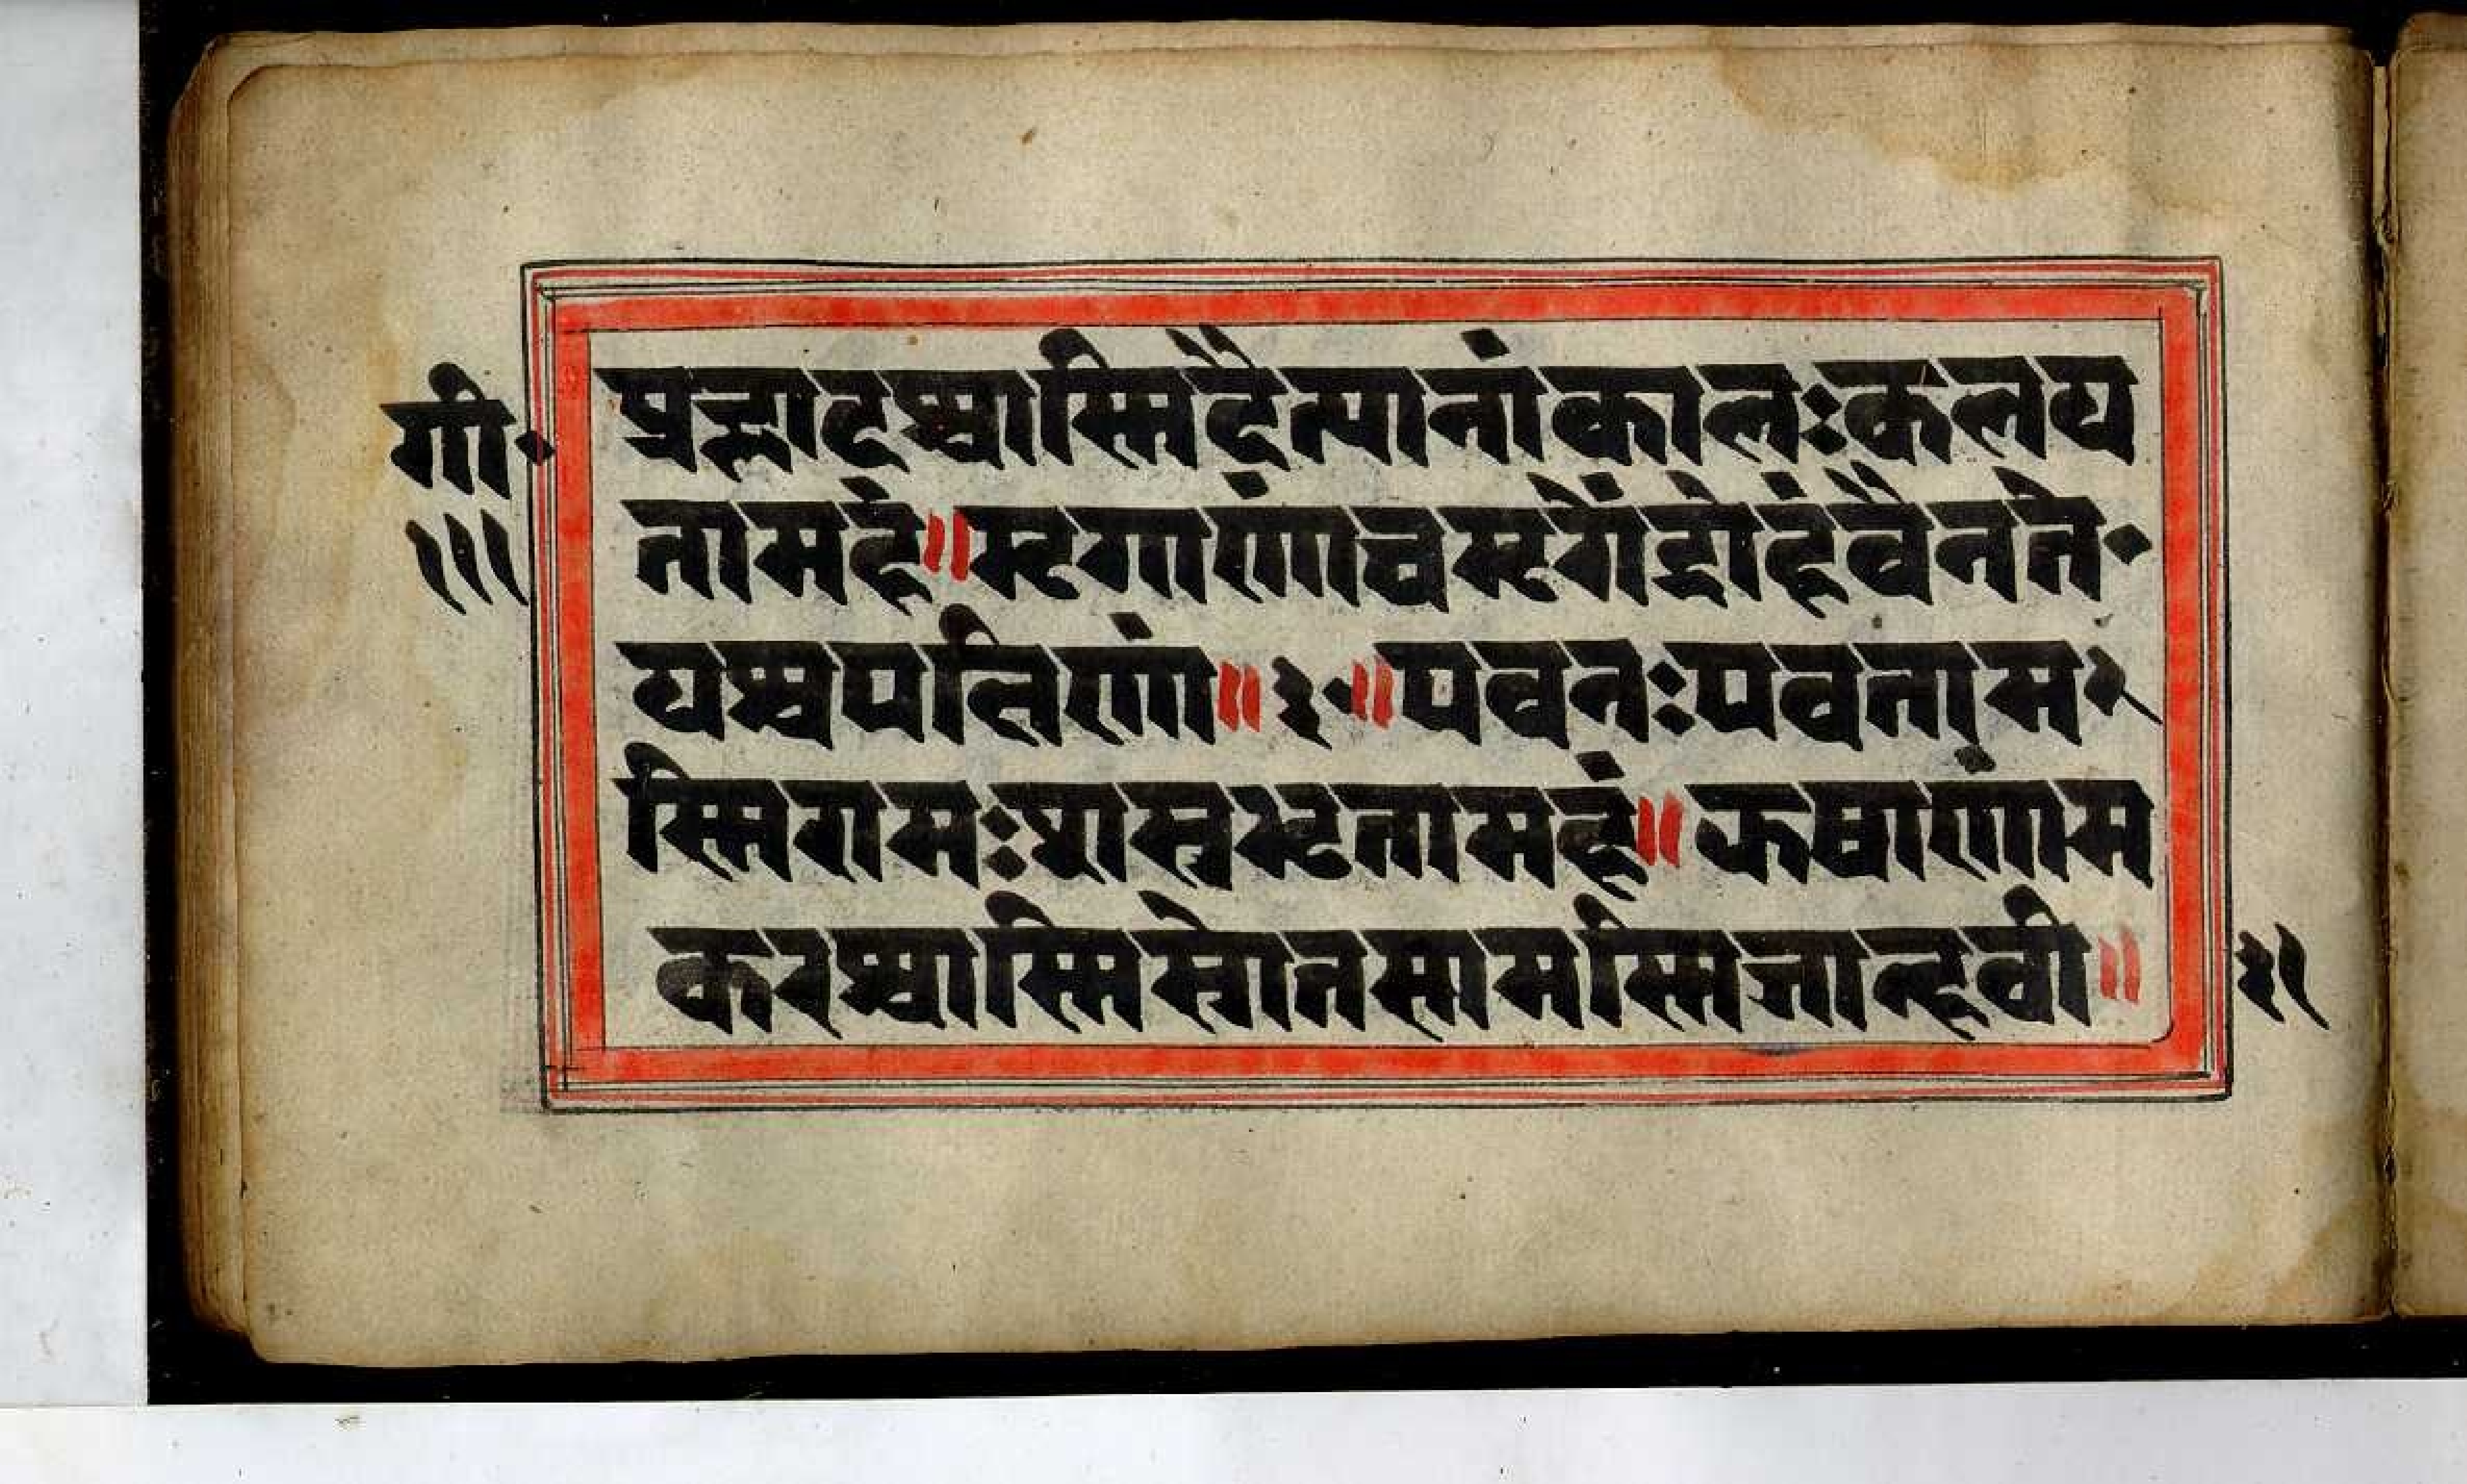 प्रह्लादश्चास्मिदैत्यानांकालःकलय
गी॰
तामहं॥मृगाणांचमृगेंद्रोहंवैनते॰
१११
यश्चपक्षिणां॥३॰॥पवनःपवतामs
स्मिरामःशस्त्रभृतामहं॥ऊषाणांम
करश्चास्मिस्रोतसामस्मिजान्हवी॥
३१